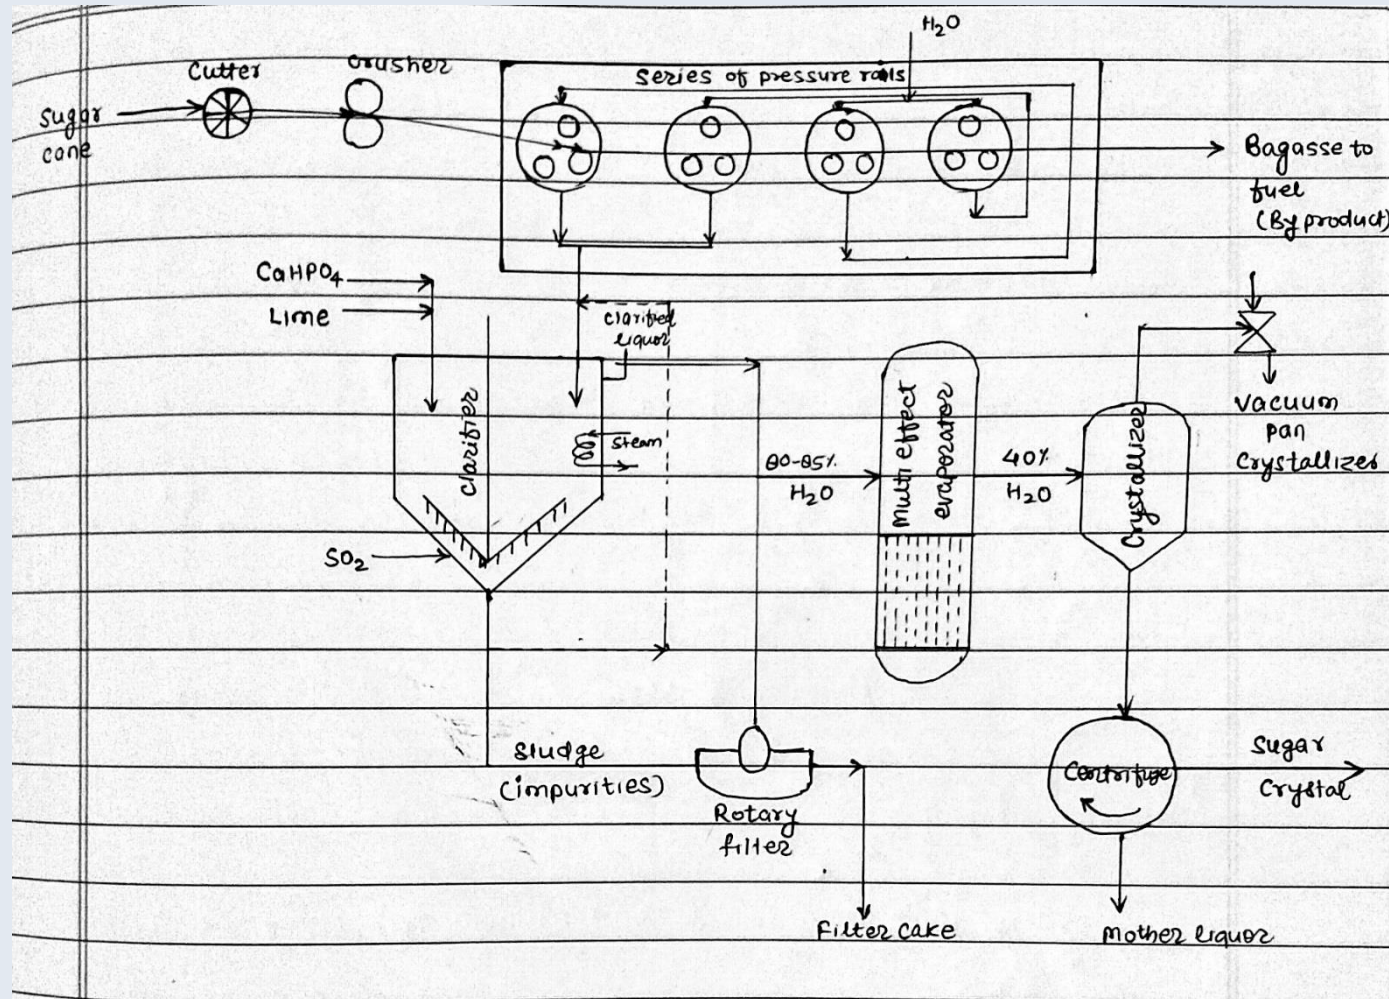 H₂O
Cutter
crusher
Series of pressure rolls
Sugar
cane
Bagasse to
fuel
(By product)
CaHPO₄
Lime
clarified
liquor
clarifier
steam
SO₂
80-85%
H₂O
Multi effect
evaporator
40%
H₂O
Crystallizer
vacuum
pan
Crystallizer
Sludge
(impurities)
Rotary
filter
Filter cake
Centrifuge
Sugar
Crystal
Mother liquor